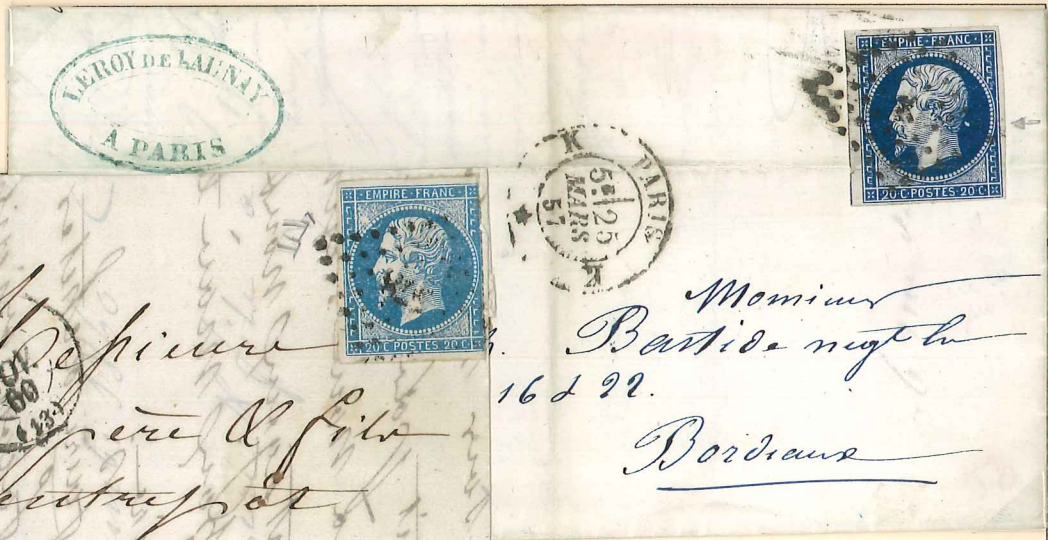 LEROY DE LAUNAY
A PARIS
EMPIRE · FRANC ·
20 · C · POSTES 20 · C ·
PARIS
K K
5E 25
MARS
57
EMPIRE · FRANC ·
20 · C · POSTES 20 · C ·
Monsieur
Bastide negt
16 d 22.
Bordeaux
60
(43)
père & fils
entrepôt